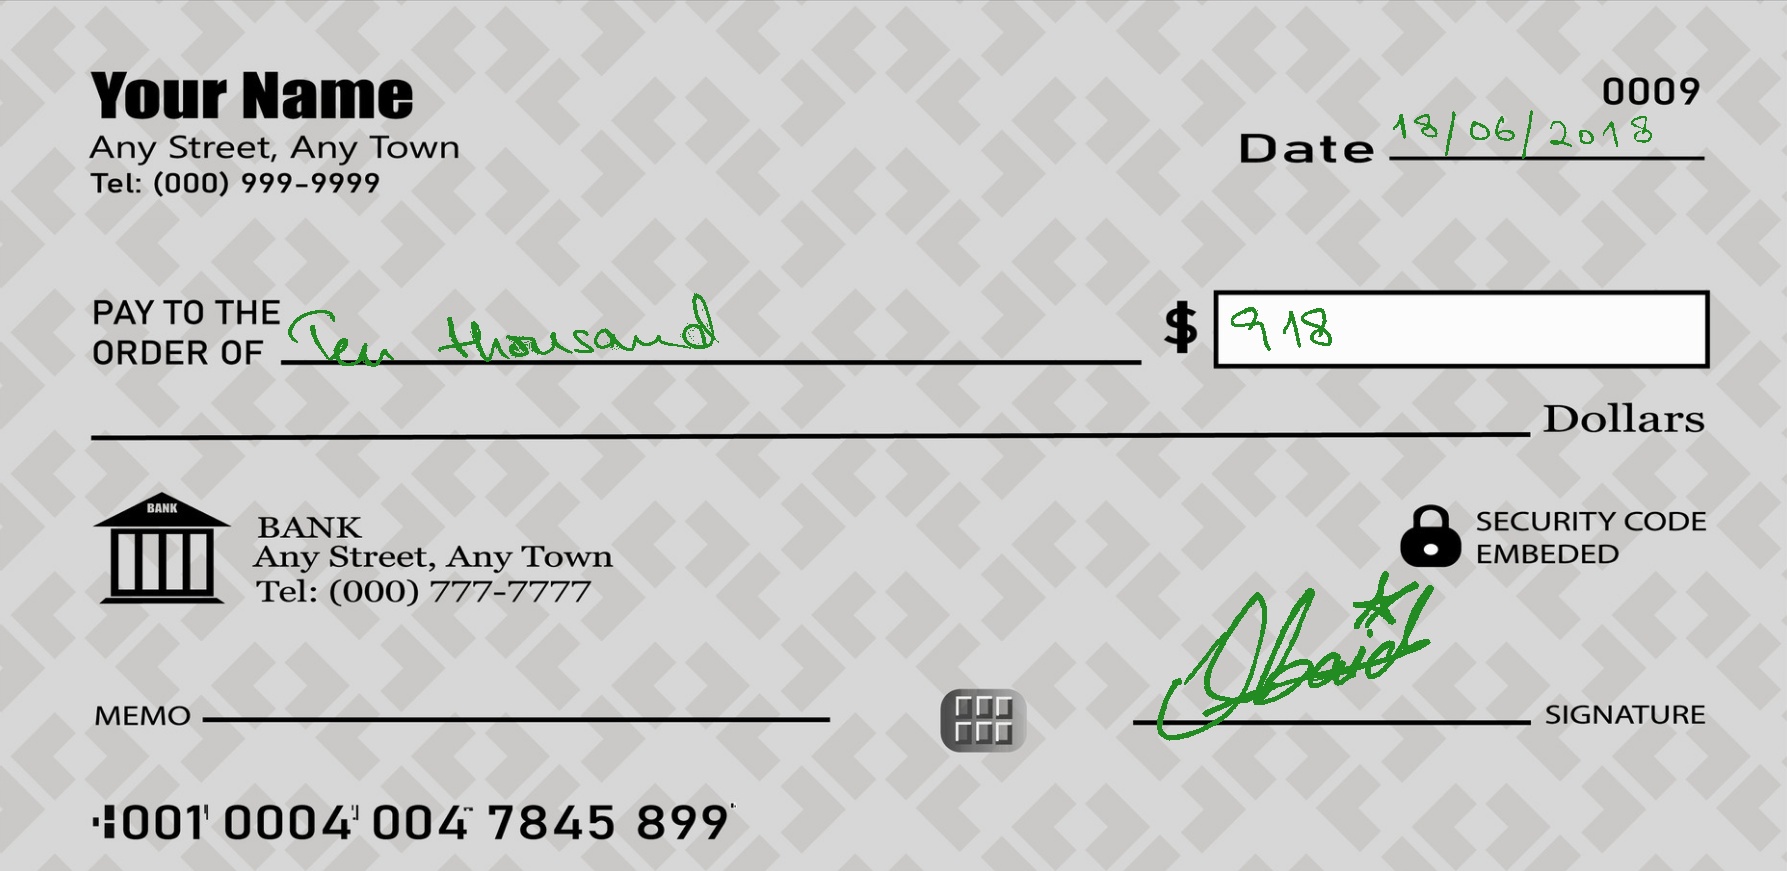 Your Name
Any Street, Any Town
Tel: (000) 999-9999
0009
Date 18/06/2018
PAY TO THE
ORDER OF Ten thousand
$ 918
Dollars
BANK
BANK
Any Street, Any Town
Tel: (000) 777-7777
SECURITY CODE
EMBEDED
MEMO
Obaid
SIGNATURE
001 0004 004 7845 899